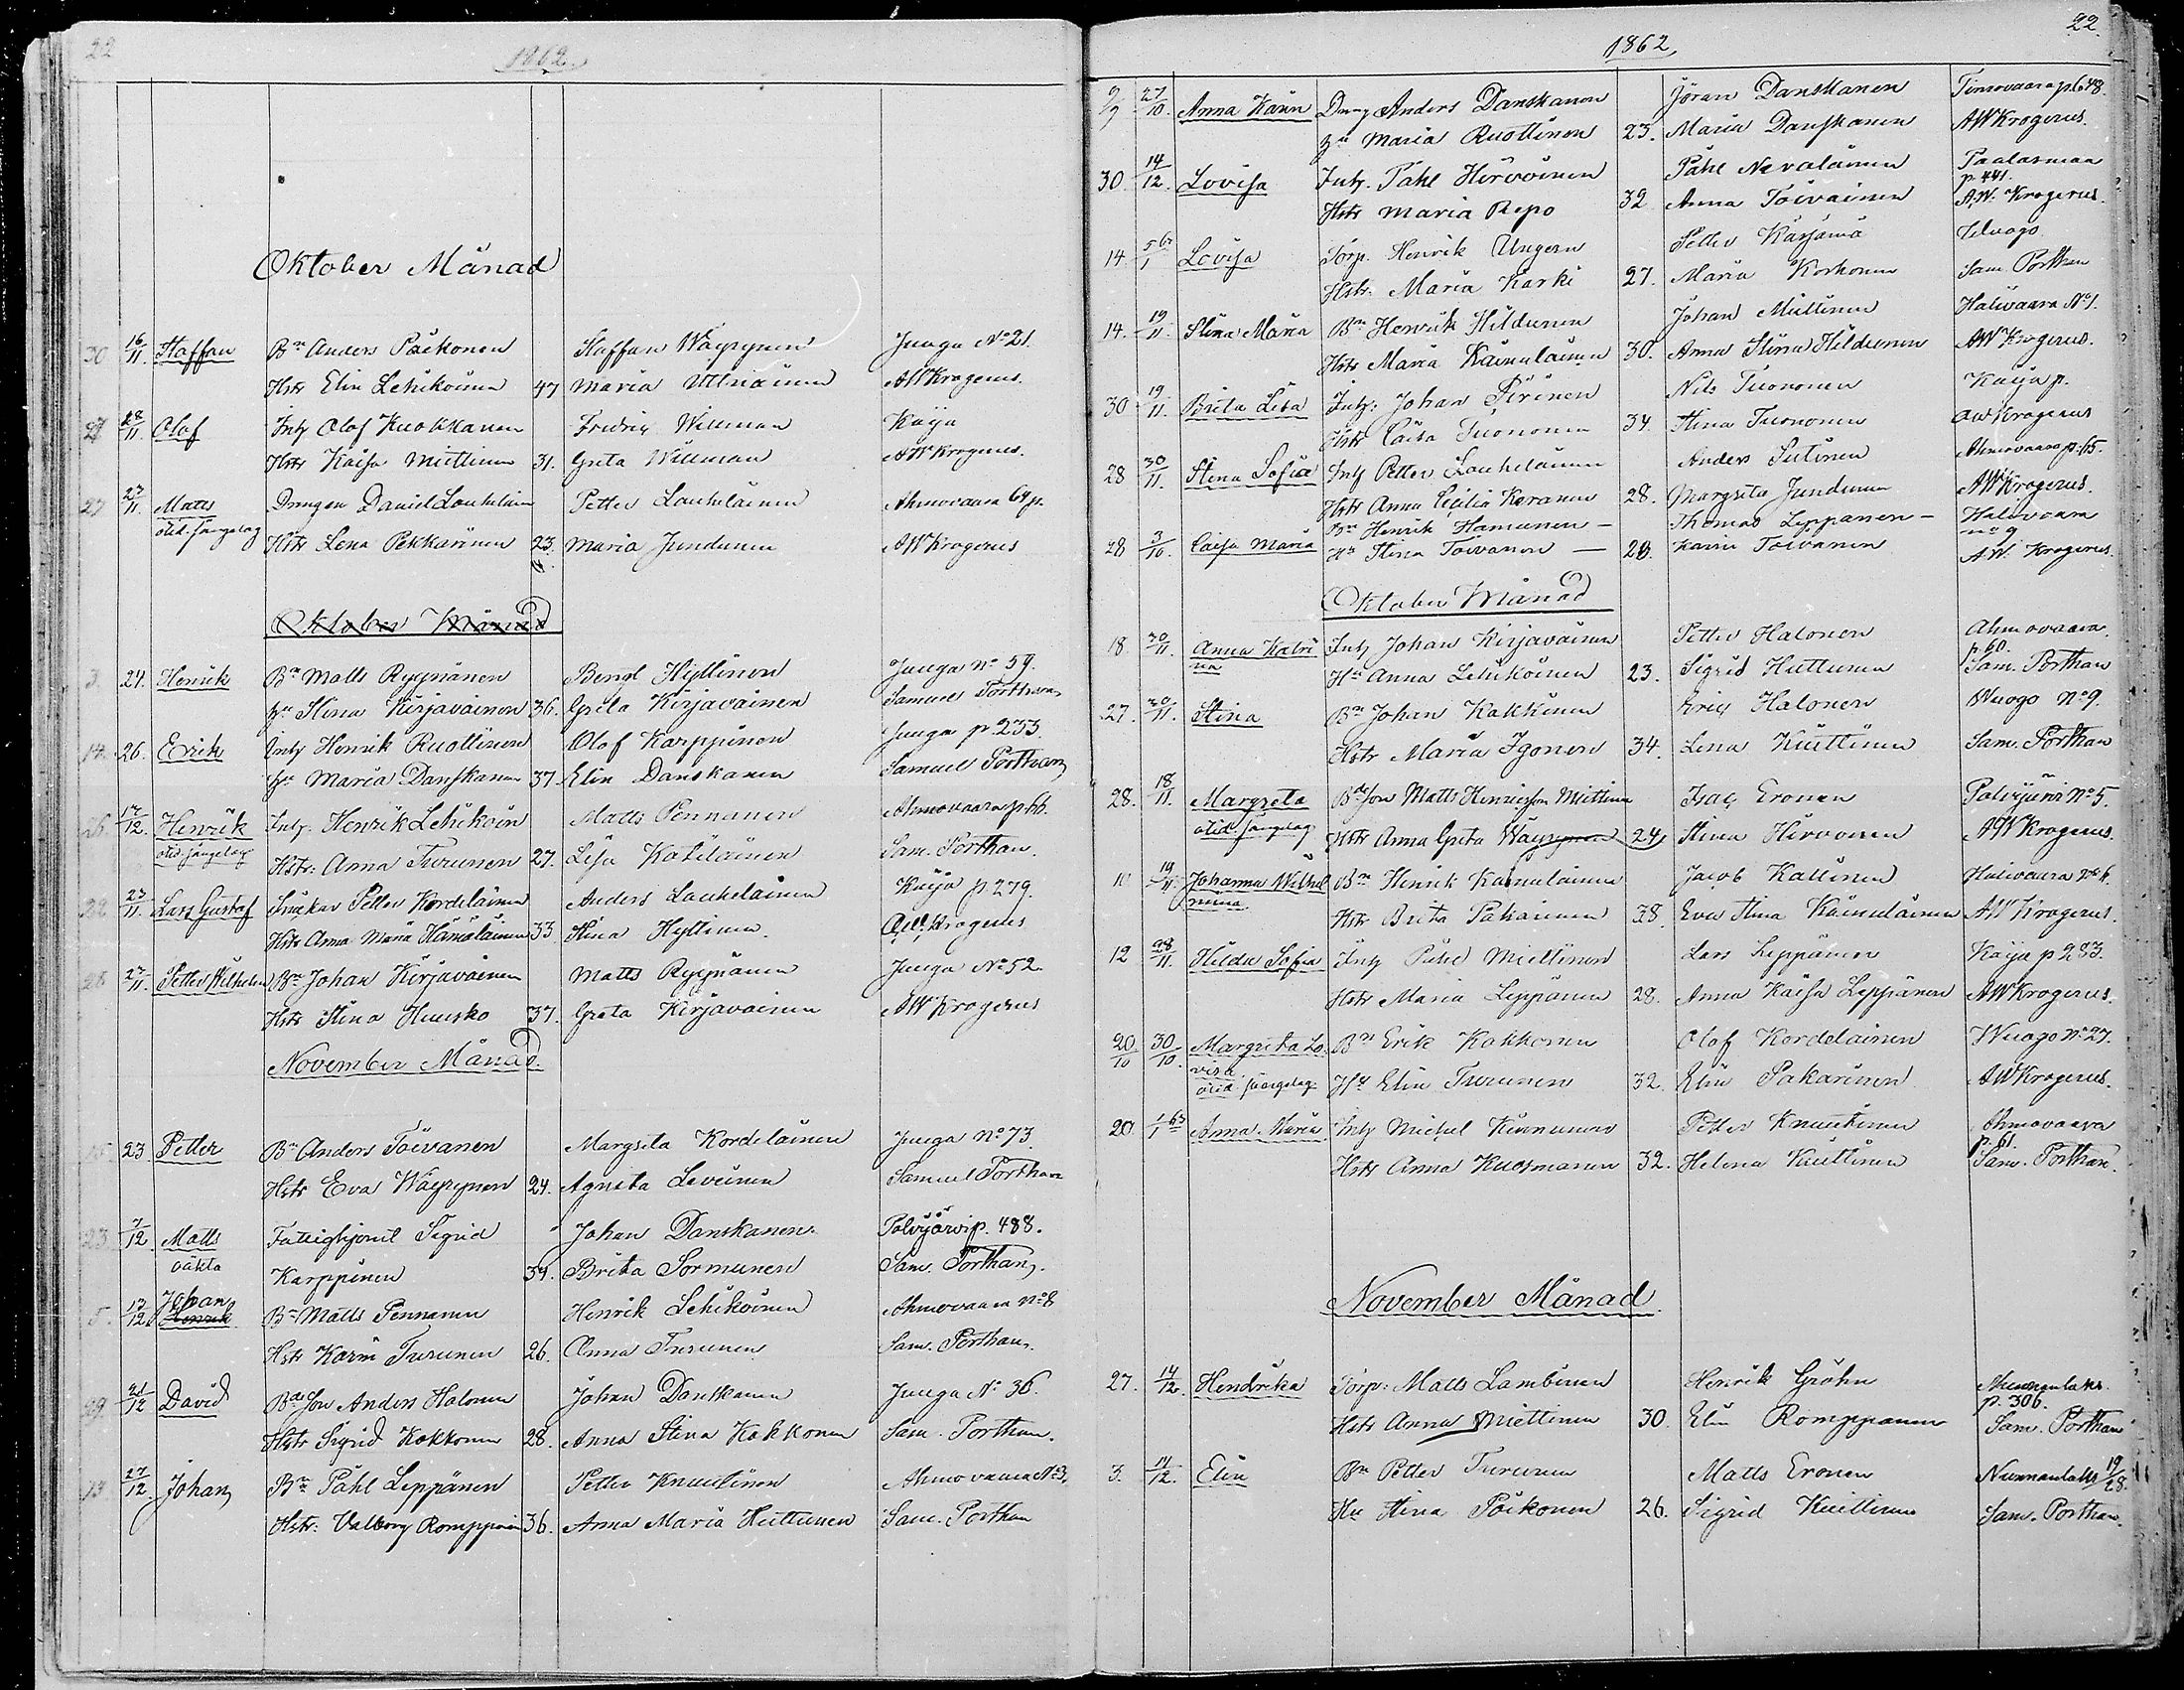 22
1862.
Oktober Månad
30 16/11. Staffan Bn Anders Päikonen Staffan Wäyrynen Juuga No 21.
Hstr Elin Lehikoinen 47 Maria Utriainen AW Krogerus.
28/11. Olof Inh Olof Kuokkanen Fredrig Willman Kaija
Hstr Kaisa Miettinen 31. Greta Willman AW Krogerus.
27 27/11. Matts Drengen Daniel Laukelain Petter Laukelainen Ahmovaara 64 p.
otid. sängelag
Hstr Lena Pekkarinen 23. Maria Jundunen AW Krogerus
Oktober Månad
3. 24. Henrik Bn Matts Ryynänen Bengt Hyttinen Juuga no 59.
Hu Stina Kirjavainen 36. Greta Kirjavainen Samuel Porthan
14. 26. Erik Inh Henrik Ruottinen Olof Karppinen Juuga p 233.
Hu Maria Danskanen 37. Elin Danskanen Samuel Porthan
26. 17/12. Henrik Inh. Henrik Lehikoin Matts Pennanen Ahmovaara p 66.
otid. sängelag
Hstr: Anna Turunen 27. Lisa Kakelainen Sam. Porthan.
22 23/11. Lars Gustaf Snickar Petter Kordelainen Anders Laukelainen Kaija p 279.
Hstr Anna Maria Hämäläinen 33 Stina Hyttinen. AW. Krogerus
28 27/11. Petter Wilhelm Bn Johan Kirjavainen Matts Ryynänen Juuga No 52.
Hstr Stina Huusko 37. Greta Kirjavainen AW Krogerus
November Månad.
15. 23 Petter Bn Anders Toivanen Margreta Kordelainen Juuga no 73
Hstr Eva Wäyrynen 24. Agneta Leveinen Samuel Porthan
23. 7/12 Matts Fattighjonet Sigrid Johan Danskanen Polvijärvi p. 488.
oäkta Karppinen 34. Brita Sormunen Sam. Porthan.
5. 13/12 Johan Henrik Bn Matts Pennanen Henrik Lehikoinen Ahmovaara no 8
Hstr Karin Turunen 26. Anna Turunen Sam. Porthan.
29. 21/12 David Bde Son Anders Halonen Johan Danskanen Juuga No 36.
Hstr Sigrid Kokkonen 28. Anna Stina Kokkonen Sam. Porthan.
13 27/12. Johan Bn Påhl Leppänen Petter Knuutinen Ahmovaara No 3,
Hstr: Valborg Romppain 36. Anna Maria Huttunen Sam. Porthan
22
1862,
27/10. Anna Karin Dreng Anders Danskanen Jöran Danskanen Timovaara p. 648.
Hu Maria Ruottinen 23. Maria Danskanen AW Krogerus.
30. 14/12. Lovisa Inh. Påhl Hirvoinen Påhl Nevalainen Paalasmaa p. 441.
Hstr Maria Repo 32 Anna Toivainen A.W. Krogerus.
14. 5/1 63 Lovisa Torp. Henrik Ungern Petter Karjama Wuago
Hstr. Maria Karki 27. Maria Korhonen Sam. Porthan
14. 19/11. Stina Maria Bn Henrik Hildunen Johan Miettinen Halivaara No 1.
Hstr Maria Kainulainen 30. Anna Stina Hildunen AW Krogerus.
30 19/11. Brita Lisa Inh: Johan Pirinen Nils Tuononen Kaija p.
Hstr Caisa Tuononen 34. Stina Tuononen AW Krogerus
28 30/11. Stina Sofia Inh Petter Laukelainen Anders Sutinen Ahmovaara p. 65.
Hstr Anna Cecilia Keranen 28. Margreta Jundunen AW Krogerus.
28 3/10. Caisa Maria Bn Henrik Hamunen – Thomas Leppanen – Halivaara no 9
Hu Stina Toivanen — 28. Karin Toivanen A.W. Krogerus.
Oktober Månad
18. 30/11. Anna Katri Inh Johan Kirjavainen Petter Halonen Ahmovaara p. 60.
na Hu Anna Lehikoinen 23. Sigrid Huttunen Sam. Porthan
27. 30/11. Stina Bn Johan Kokkinen Erig Halonen Wuago No 9.
Hstr Maria Igonen 34. Lena Kuittinen Sam. Porthan
28. 18/11. Margreta Bde Son Matts Henricson Miettinen Isac Eronen Polvijärvi No 5.
otid sängelag Hstr Anna Greta Wäyrynen 24. Stina Hirvonen AW Krogerus.
10 19/11. Johanna Wilhel Bn Henrik Kainulainen Jacob Kallinen Halivaara No 6.
mina. Hstr Brita Pakainen 38. Eva Stina Kainulainen AW Krogerus.
12 28/11. Hilda Sofia Inh Påhl Miettinen Lars Leppänen Kaija p 283.
Hstr Maria Leppänen 28. Anna Kaisa Leppänen AW Krogerus.
20/10 30/10. Margreta Lo Bn Erik Kokkonen Olof Kordelainen Wuago No 27.
visa
otid sängelag. Hu Elin Turunen 32. Elin Pakarinen AW Krogerus.
20. 1/1 63 Anna Maria Inh Michel Kinnunen Petter Knuutinen Ahmovaara p. 61.
Hstr Anna Kuosmanen 32. Helena Kuittinen Sam. Porthan.
November Månad.
27. 14/12. Hendrika Torp: Matts Lambinen Henrik Gröhn Nunnanlaks. p. 306.
Hstr Anna Miettinen 30. Elin Romppanen Sam. Porthan
3. 14/12. Elin Bn Petter Turunen Matts Eronen Nunnanlaks 19/28.
Hu Stina Poikonen 26. Sigrid Kuittinen Sam. Porthan.